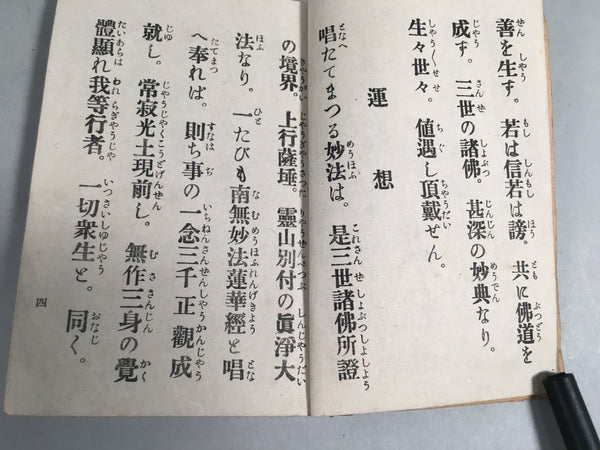 善を生す。若は信若は謗。共に佛道を
成す。三世の諸佛。甚深の妙典なり。
生々世々。値遇し頂戴せん。
運想
唱たてまつる妙法は。是三世諸佛所證
の境界。上行薩埵。靈山別付の眞淨大
法なり。一たびも南無妙法蓮華經と唱
へ奉れば。則ち事の一念三千正觀成
就し。常寂光土現前し。無作三身の覺
體顯れ我等行者。一切衆生と。同く。
四